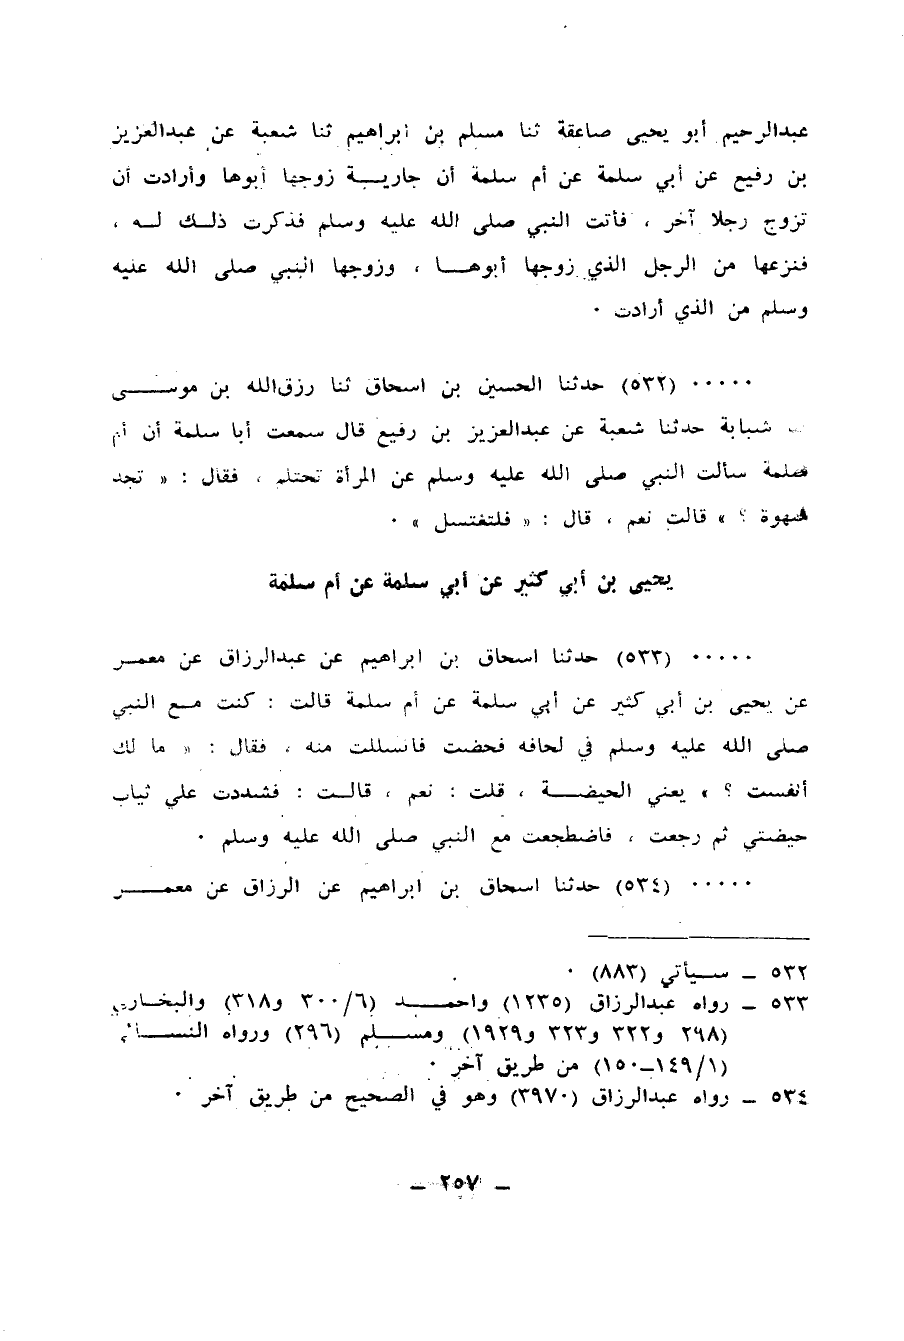 عبدالرحيم أبو يحيى صاعقة ثنا مسلم بن ابراهيم ثنا شعبة عن عبدالعزيز
بن رفيع عن أبي سلمة عن أم سلمة أن جاريـــة زوجها أبوها وأرادت أن
تزوج رجلا آخر ، فأتت النبي صلى الله عليه وسلم فذكرت ذلــك لــه ،
فنزعها من الرجل الذي زوجها أبوهـــا ، وزوجها النبي صلى الله عليه
وسلم من الذي أرادت ٠
٠٠٠٠٠ (٥٣٢) حدثنا الحسين بن اسحاق ثنا رزق‌الله بن موســـى
شبابة حدثنا شعبة عن عبدالعزيز بن رفيع قال سمعت أبا سلمة أن أم
سلمة سألت النبي صلى الله عليه وسلم عن المرأة تحتلم ، فقال : « تجد
شهوة ؟ » قالت نعم ، قال : « فلتغتسل » ٠
يحيى بن أبي كثير عن أبي سلمة عن أم سلمة
٠٠٠٠٠ (٥٣٣) حدثنا اسحاق بن ابراهيم عن عبدالرزاق عن معمــر
عن يحيى بن أبي كثير عن أبي سلمة عن أم سلمة قالت : كنت مــع النبي
صلى الله عليه وسلم في لحافه فحضت فانسللت منه ، فقال : « ما لك
أنفست ؟ » يعني الحيضـــة ، قلت : نعم ، قالــت : فشددت علي ثياب
حيضتي ثم رجعت ، فاضطجعت مع النبي صلى الله عليه وسلم ٠
٠٠٠٠٠ (٥٣٤) حدثنا اسحاق بن ابراهيم عن الرزاق عن معمـــر
٥٣٢ ــ ســيأتي (٨٨٣) ٠
٥٣٣ ــ رواه عبدالرزاق (١٢٣٥) واحمـــد (٣٠٠/٦ و٣١٨) والبخــاري
(٢٩٨ و٣٢٢ و٣٢٣ و١٩٢٩) ومســـلم (٢٩٦) ورواه النســـائي
(١٤٩/١ــ١٥٠) من طريق آخر ٠
٥٣٤ ــ رواه عبدالرزاق (٣٩٧٠) وهو في الصحيح من طريق آخر ٠
ــ ٢٥٧ ــ